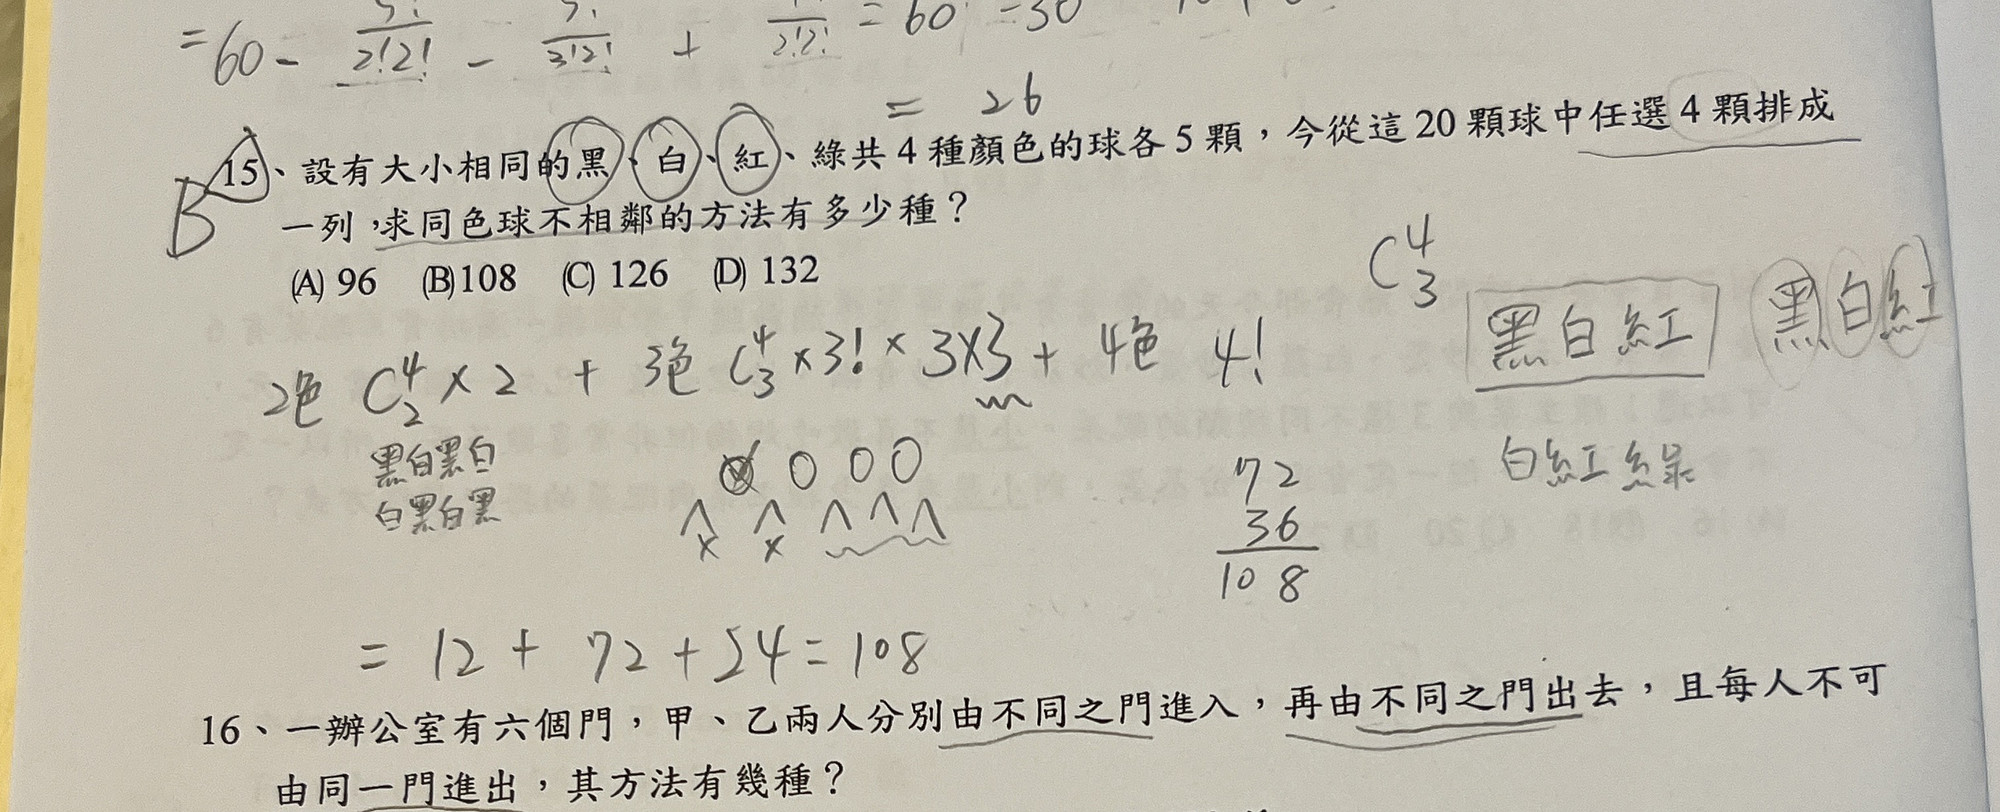 = 60 - 5!/2!2! - 5!/3!2! + /2!2! = 60 - 30
= 26
15、設有大小相同的黑、白、紅、綠共 4 種顏色的球各 5 顆，今從這 20 顆球中任選 4 顆排成
B
一列，求同色球不相鄰的方法有多少種？
(A) 96 (B)108 (C) 126 (D) 132
C⁴₃
黑白紅 黑白紅
2色 C⁴₂ × 2 + 3色 C⁴₃ × 3! × 3×3 + 4色 4!
黑白黑白
白黑白黑
白紅綠
72
36
108
= 12 + 72 + 24 = 108
16、一辦公室有六個門，甲、乙兩人分別由不同之門進入，再由不同之門出去，且每人不可
由同一門進出，其方法有幾種？